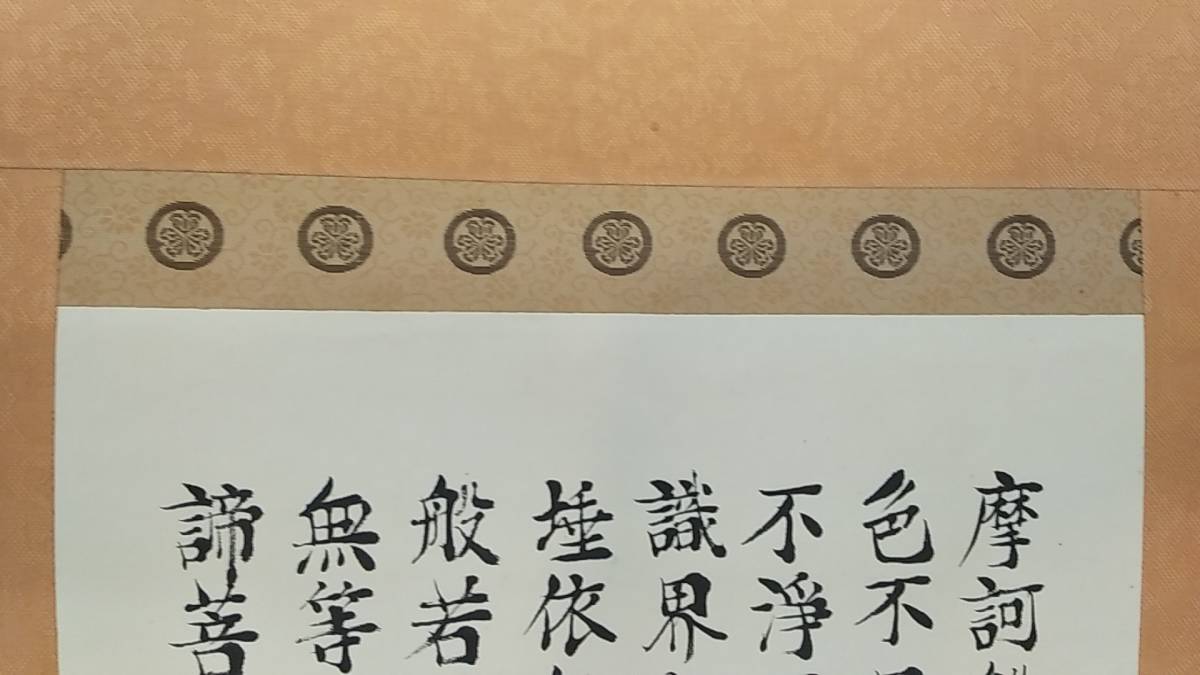 摩訶
色不
不淨
識界
埵依
般若
無等
諦菩